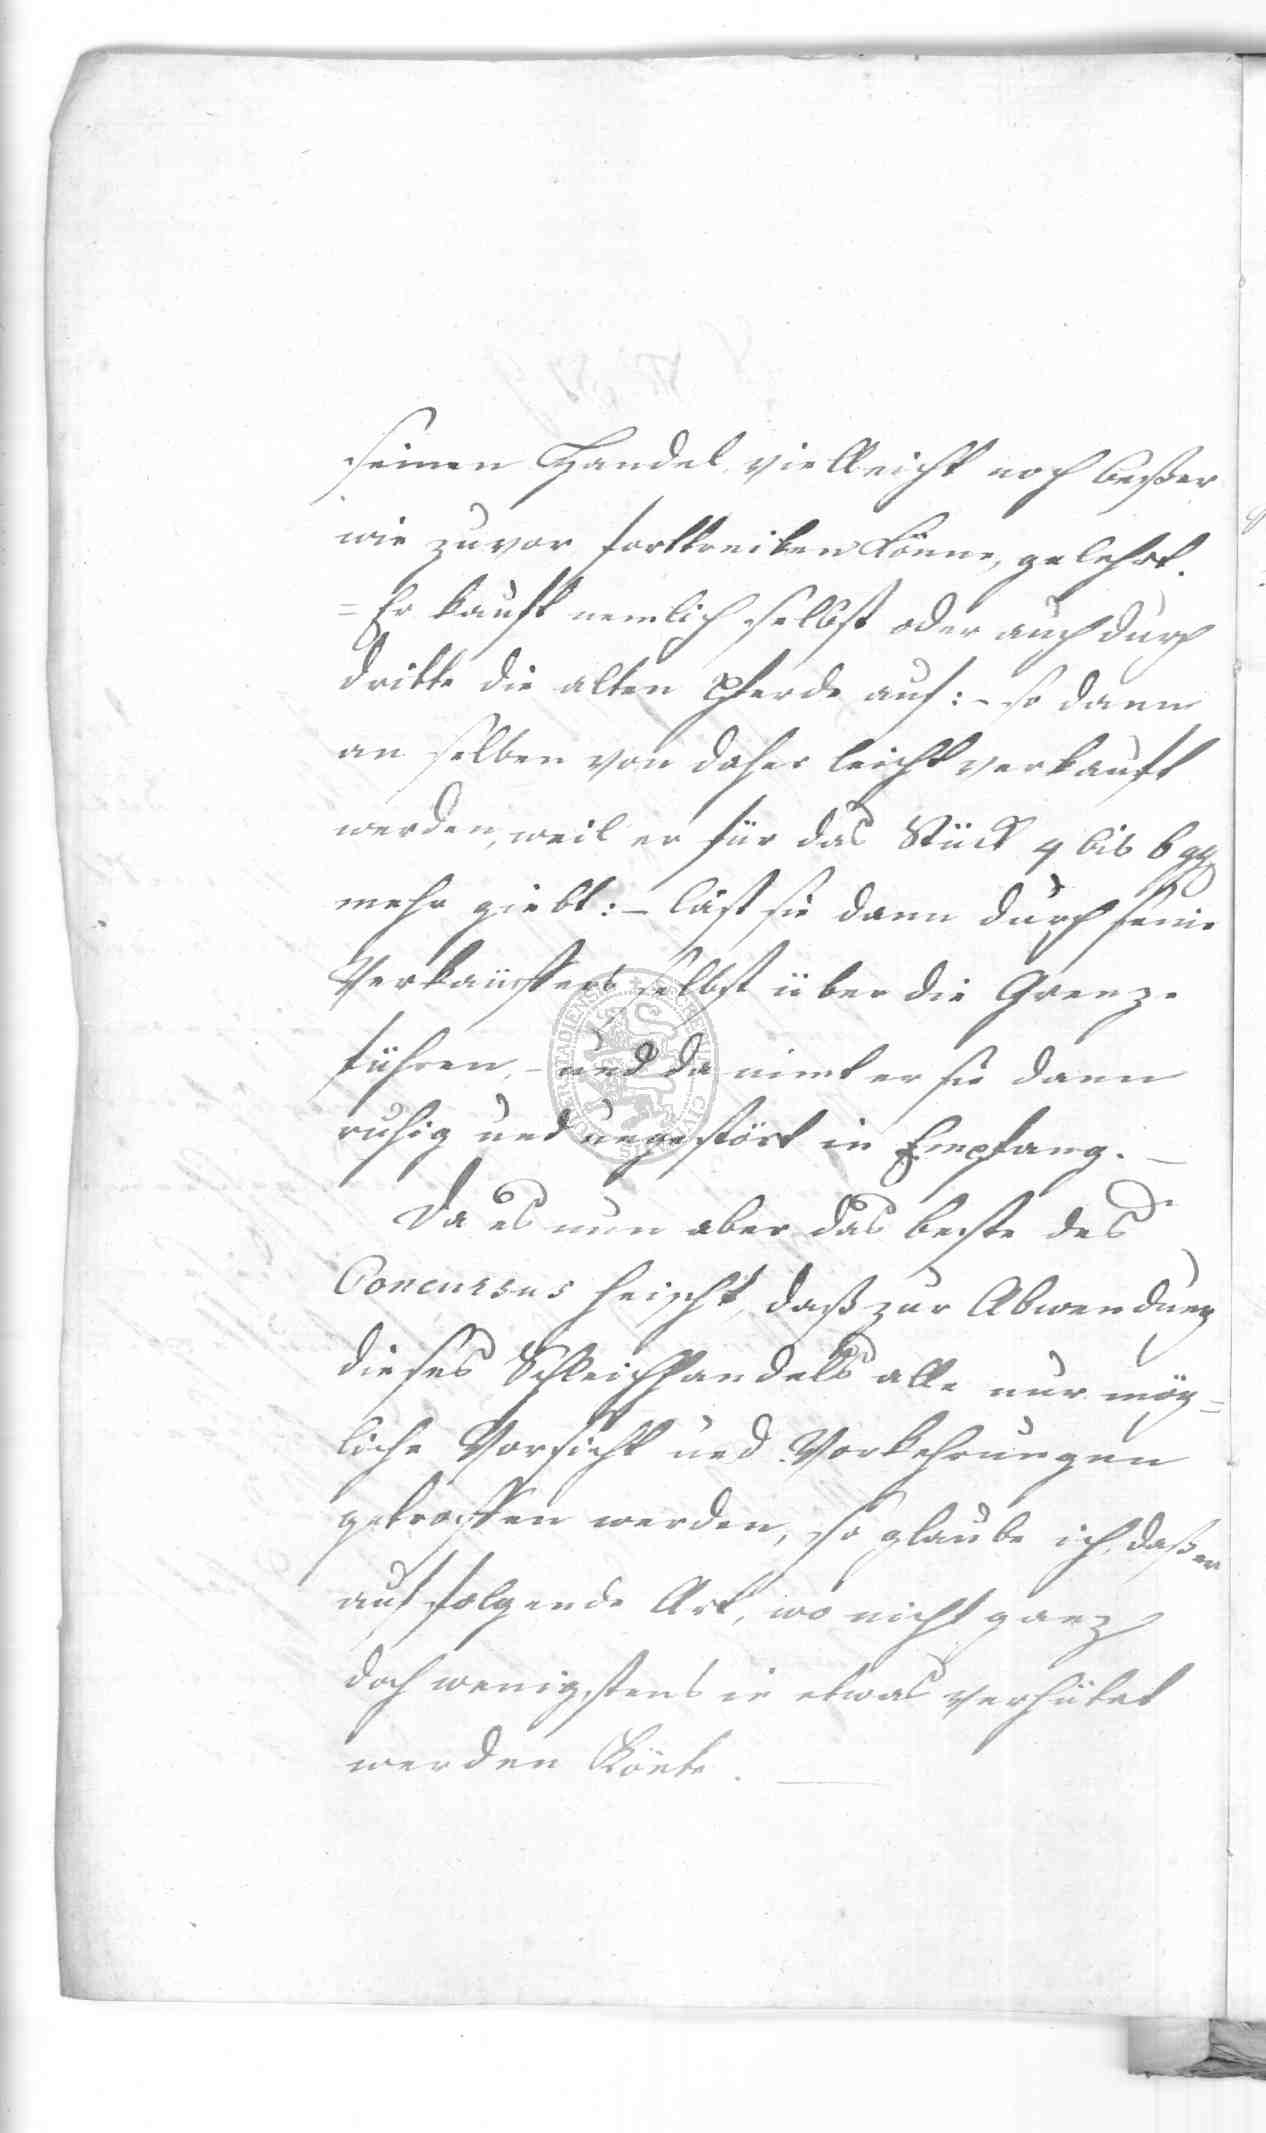 seinen Handel vielleicht noch beßer
wie zuvor forttreiben könne, gelehrt.
= Er kauft nemlich selbst oder auch durch
dritte die alten Pferde auf: - so dann
an selben von daher leicht verkauft
werden, weil er für das Stück 4 bis 6 ggl
mehr giebt: - läst sie dann durch seine
Verkäuffers selbst über die Grenze
führen, - und da nimt er sie dann
ruhig und ungestört in Empfang. -
Da es nun aber das beste des
Concursus heischt, daß zur Abwendung
dieses Schleichhandels alle nur mög=
liche Vorsicht und Vorkehrungen
getroffen werden, so glaube ich, daß er
auf folgende Art, wo nicht ganz
doch wenigstens in etwas verhütet
werden könte. -